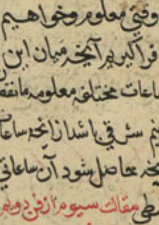 وقتی معلوم و خواهیم
فرا گیریم آنچه میان این
ساعات مختلفه معلومه مانقه
نیم شرقی باشد از آنچه ساعا
نچه حاصل شود آن ساعاتی
مقالت سیوم از فن دویم